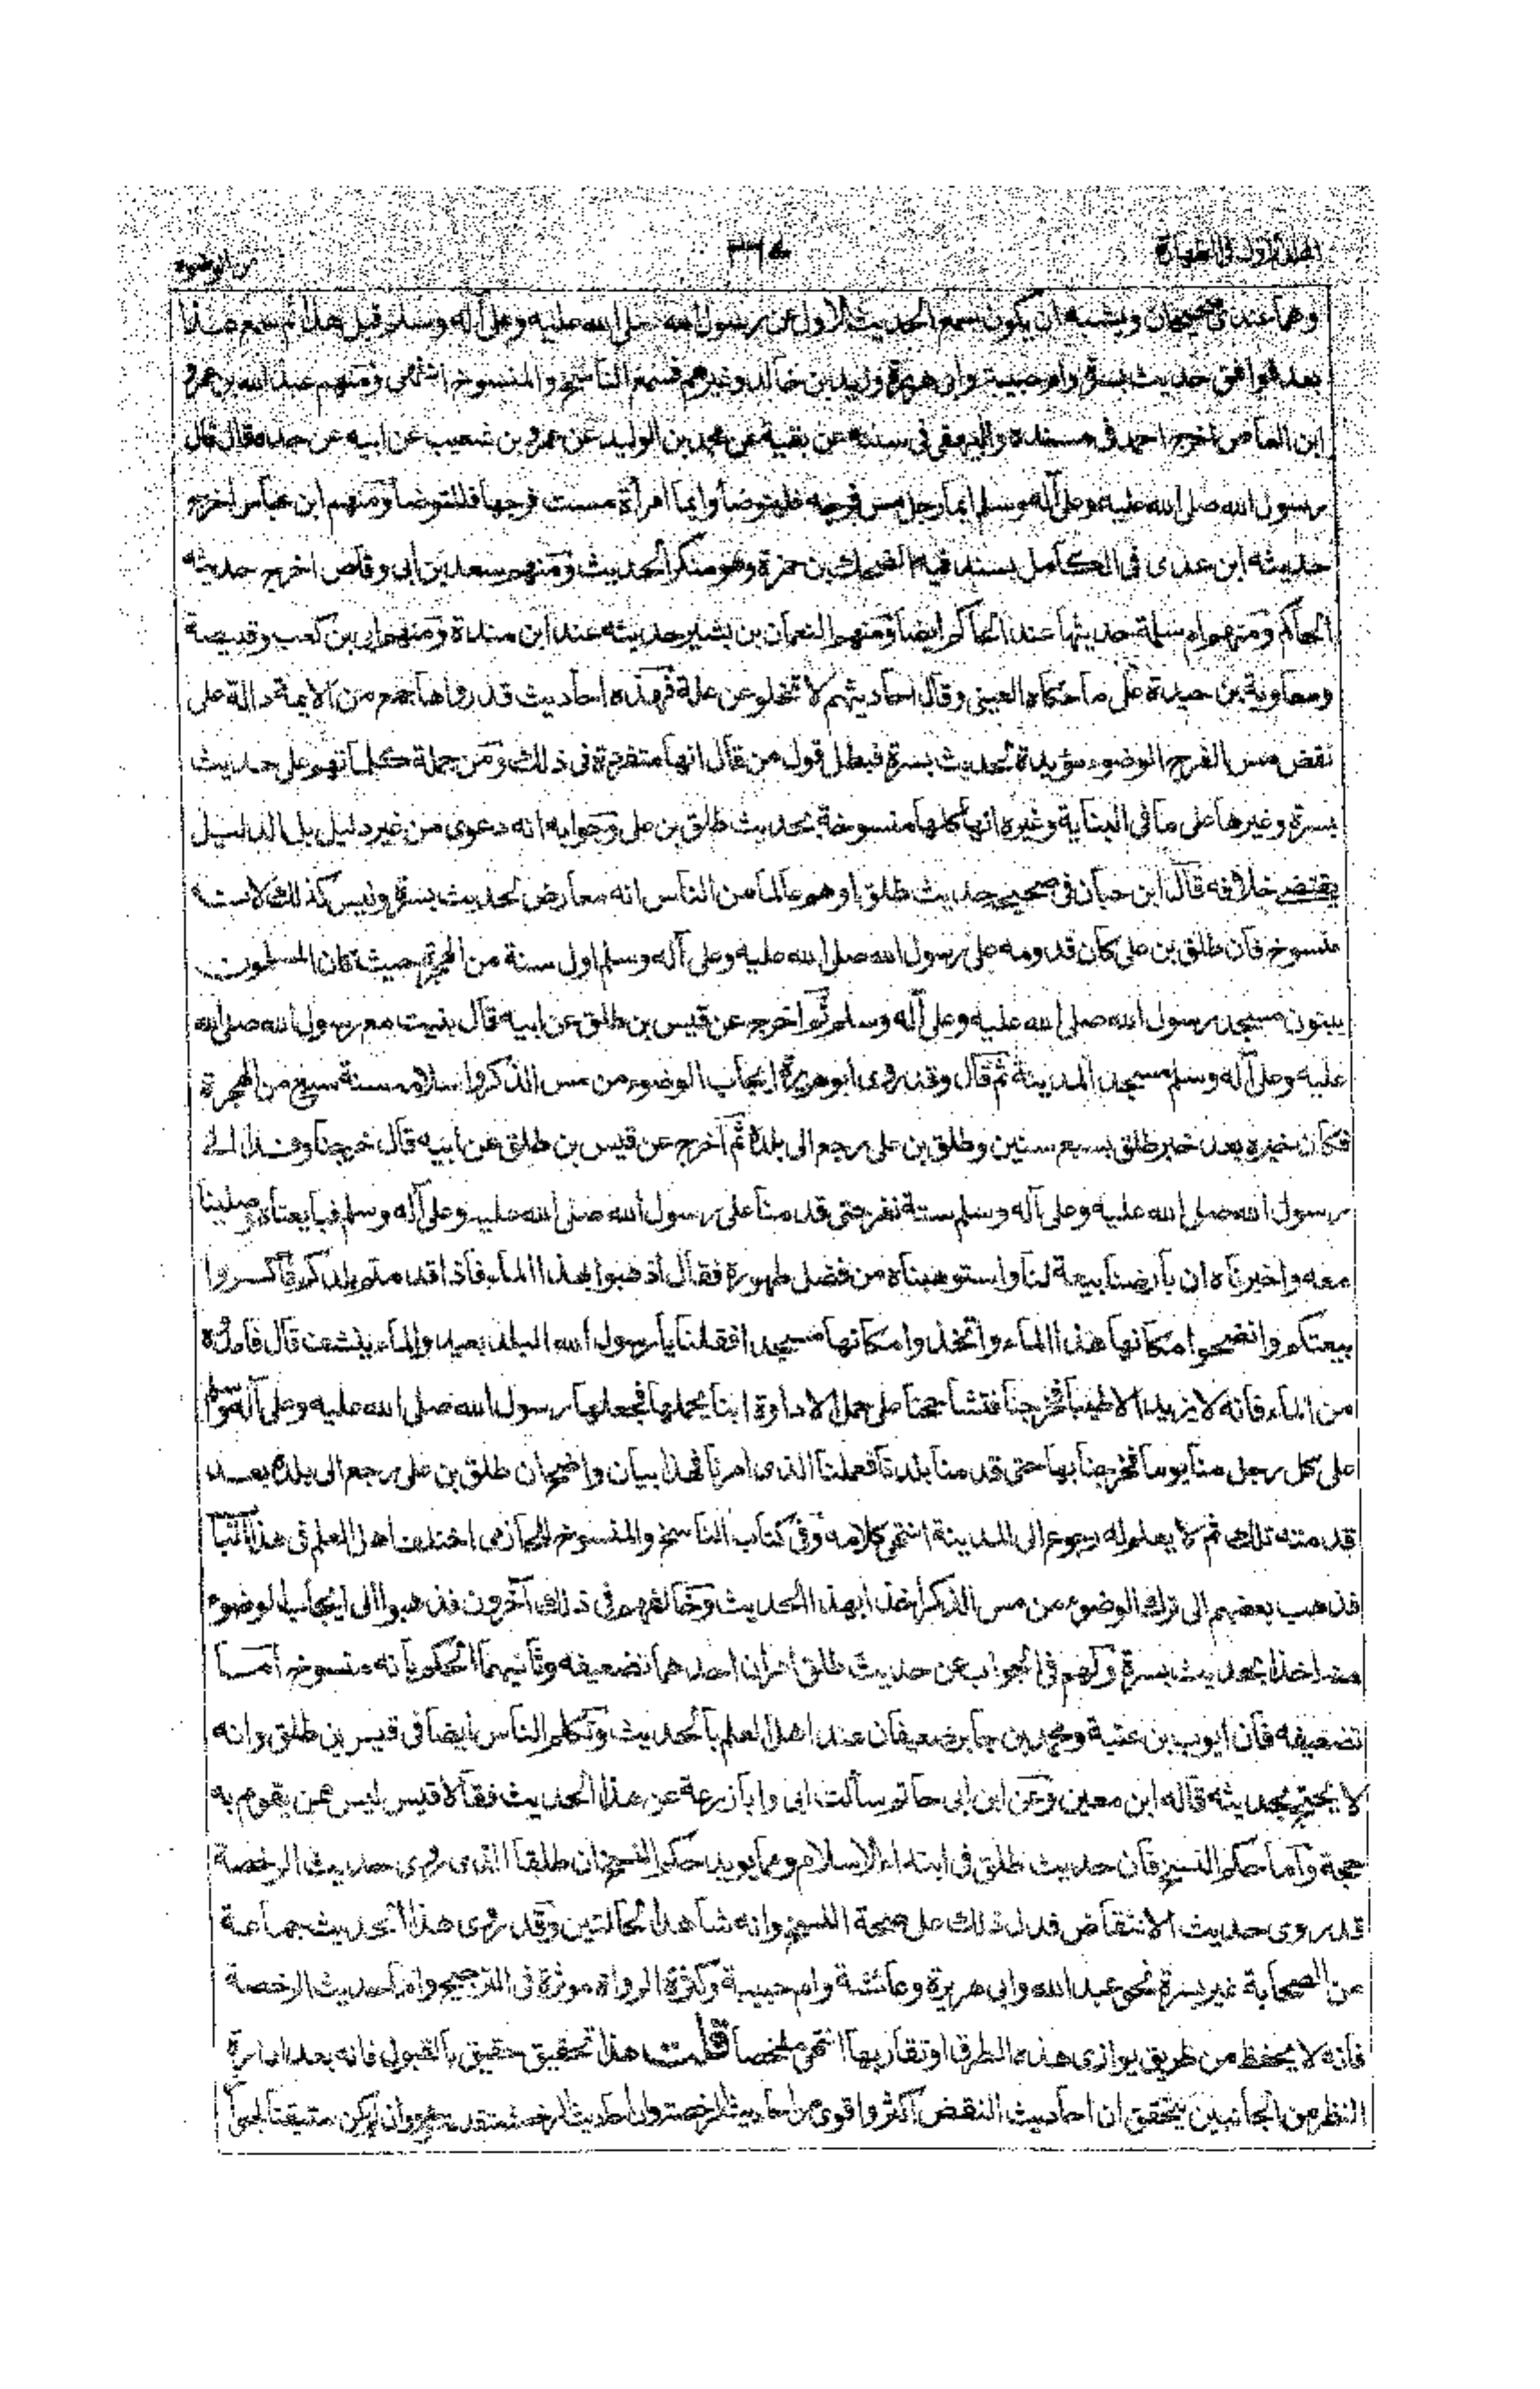 المجلد الأول في الطهارة ٣٦٤
وهما عندي صحيحان ويشبه ان يكون سمع الحديث الاول من رسول الله صلى الله عليه وعلى آله وسلم قبل هذا ثم سمع هذا
بعد فوافق حديث بسرة وام حبيبة وابي هريرة وزيد بن خالد وغيرهم فسمع الناسخ والمنسوخ انتهى ومنهم عبد الله بن عمرو
ابن العاص اخرج احمد في مسنده والبيهقي في سننه عن بقية عن محمد بن الوليد عن عمرو بن شعيب عن ابيه عن جده قال قال
رسول الله صلى الله عليه وعلى آله وسلم ايما رجل مس فرجه فليتوضأ وايما امرأة مست فرجها فلتتوضأ ومنهم ابن عباس اخرج
حديثه ابن عدى في الكامل بسند فيه الضحاك بن حمزة وهو منكر الحديث ومنهم سعد بن ابي وقاص اخرج حديثه
الحاكم ومنهم ام سلمة حديثها عند الحاكم ايضا ومنهم النعمان بن بشير حديثه عند ابن مندة ومنهم ابي بن كعب وقبيصة
ومعاوية بن حيدة على ما حكاه العيني وقال احاديثهم لا تخلو عن علة فهذه احاديث قد رواها جمع من الايمة دالة على
نقض مس الفرج الوضوء مؤيدة لحديث بسرة فبطل قول من قال انها متفردة في ذلك ومن جملة كلماتهم على حديث
بسرة وغيرها على ما في العناية وغيره انها كلها منسوخة بحديث طلق بن على وجوابه انه دعوى من غير دليل بل الدليل
يقتضي خلافه قال ابن حبان في صحيحه حديث طلق اوهم عالما من الناس انه معارض لحديث بسرة وليس كذلك لانه
منسوخ فان طلق بن على كان قدومه على رسول الله صلى الله عليه وعلى آله وسلم اول سنة من الهجرة حيث كان المسلمون
يبنون مسجد رسول الله صلى الله عليه وعلى آله وسلم ثم اخرج عن قيس بن طلق عن ابيه قال بنيت مع رسول الله صلى الله
عليه وعلى آله وسلم مسجد المدينة ثم قال وقد روى ابو هريرة ايجاب الوضوء من مس الذكر واسلامه سنة سبع من الهجرة
فكان خبره بعد خبر طلق بسبع سنين وطلق بن على رجع الى بلده ثم اخرج عن قيس بن طلق عن ابيه قال خرجنا وفدا الى
رسول الله صلى الله عليه وعلى آله وسلم ستة نفر حتى قدمنا على رسول الله صلى الله عليه وعلى آله وسلم فبايعناه وصلينا
معه واخبرناه ان بارضنا بيعة لنا واستوهبناه من فضل طهوره فقال اذهبوا بهذا الماء فاذا قدمتم بلدكم فاكسروا
بيعتكم وانضحوا مكانها هذا الماء واتخذوا مكانها مسجدا فقلنا يا رسول الله البلد بعيد والماء ينشف قال فامدوه
من الماء فانه لا يزيده الا طيبا فخرجنا فتشاححنا على حمل الاداوة اينا يحملها فجعلها رسول الله صلى الله عليه وعلى آله وسلم
على كل رجل منا يوما فخرجنا بها حتى قدمنا بلدنا فعملنا الذى امرنا فهذا بيان واضح ان طلق بن على رجع الى بلده بعد
قدمته تلك ثم لا يعلم له رجوع الى المدينة انتهى كلامه وفي كتاب الناسخ والمنسوخ للحازمي اختلف اهل العلم في هذا الباب
فذهب بعضهم الى ترك الوضوء من مس الذكر اخذا بهذا الحديث وخالفهم في ذلك آخرون فذهبوا الى ايجاب الوضوء
منه اخذا بحديث بسرة ولهم في الجواب عن حديث طلق امران احدهما تضعيفه وثانيهما الحكم بانه منسوخ اما
تضعيفه فان ايوب بن عتبة ومحمد بن جابر ضعيفان عند اهل العلم بالحديث وتكلم الناس ايضا في قيس بن طلق وانه
لا يحتج بحديثه قاله ابن معين وعن ابن ابي حاتم سألت ابي وابا زرعة عن هذا الحديث فقالا قيس ليس ممن يقوم به
حجة واما حكم النسخ فان حديث طلق في ابتداء الاسلام ومما يويد حكم النسخ ان طلقا الذى روى حديث الرخصة
قد روى حديث الانتقاض فدل ذلك على صحة النسخ وانه شاهد الحالتين وقد روى هذا الحديث جماعة
عن الصحابة غير بسرة نحو عبد الله وابي هريرة وعائشة وام حبيبة وكثرة الرواة موثرة في الترجيح واما حديث الرخصة
فانه لا يحفظ من طريق يوازى هذه الطرق او تقاربها انتهى ملخصا قلت هذا تحقيق حقيق بالقبول فانه بعد ادارة
النظر من الجانبين يتحقق ان احاديث النقض اكثر واقوى من احاديث الرخصة وان احاديث الرخصة متقدمة